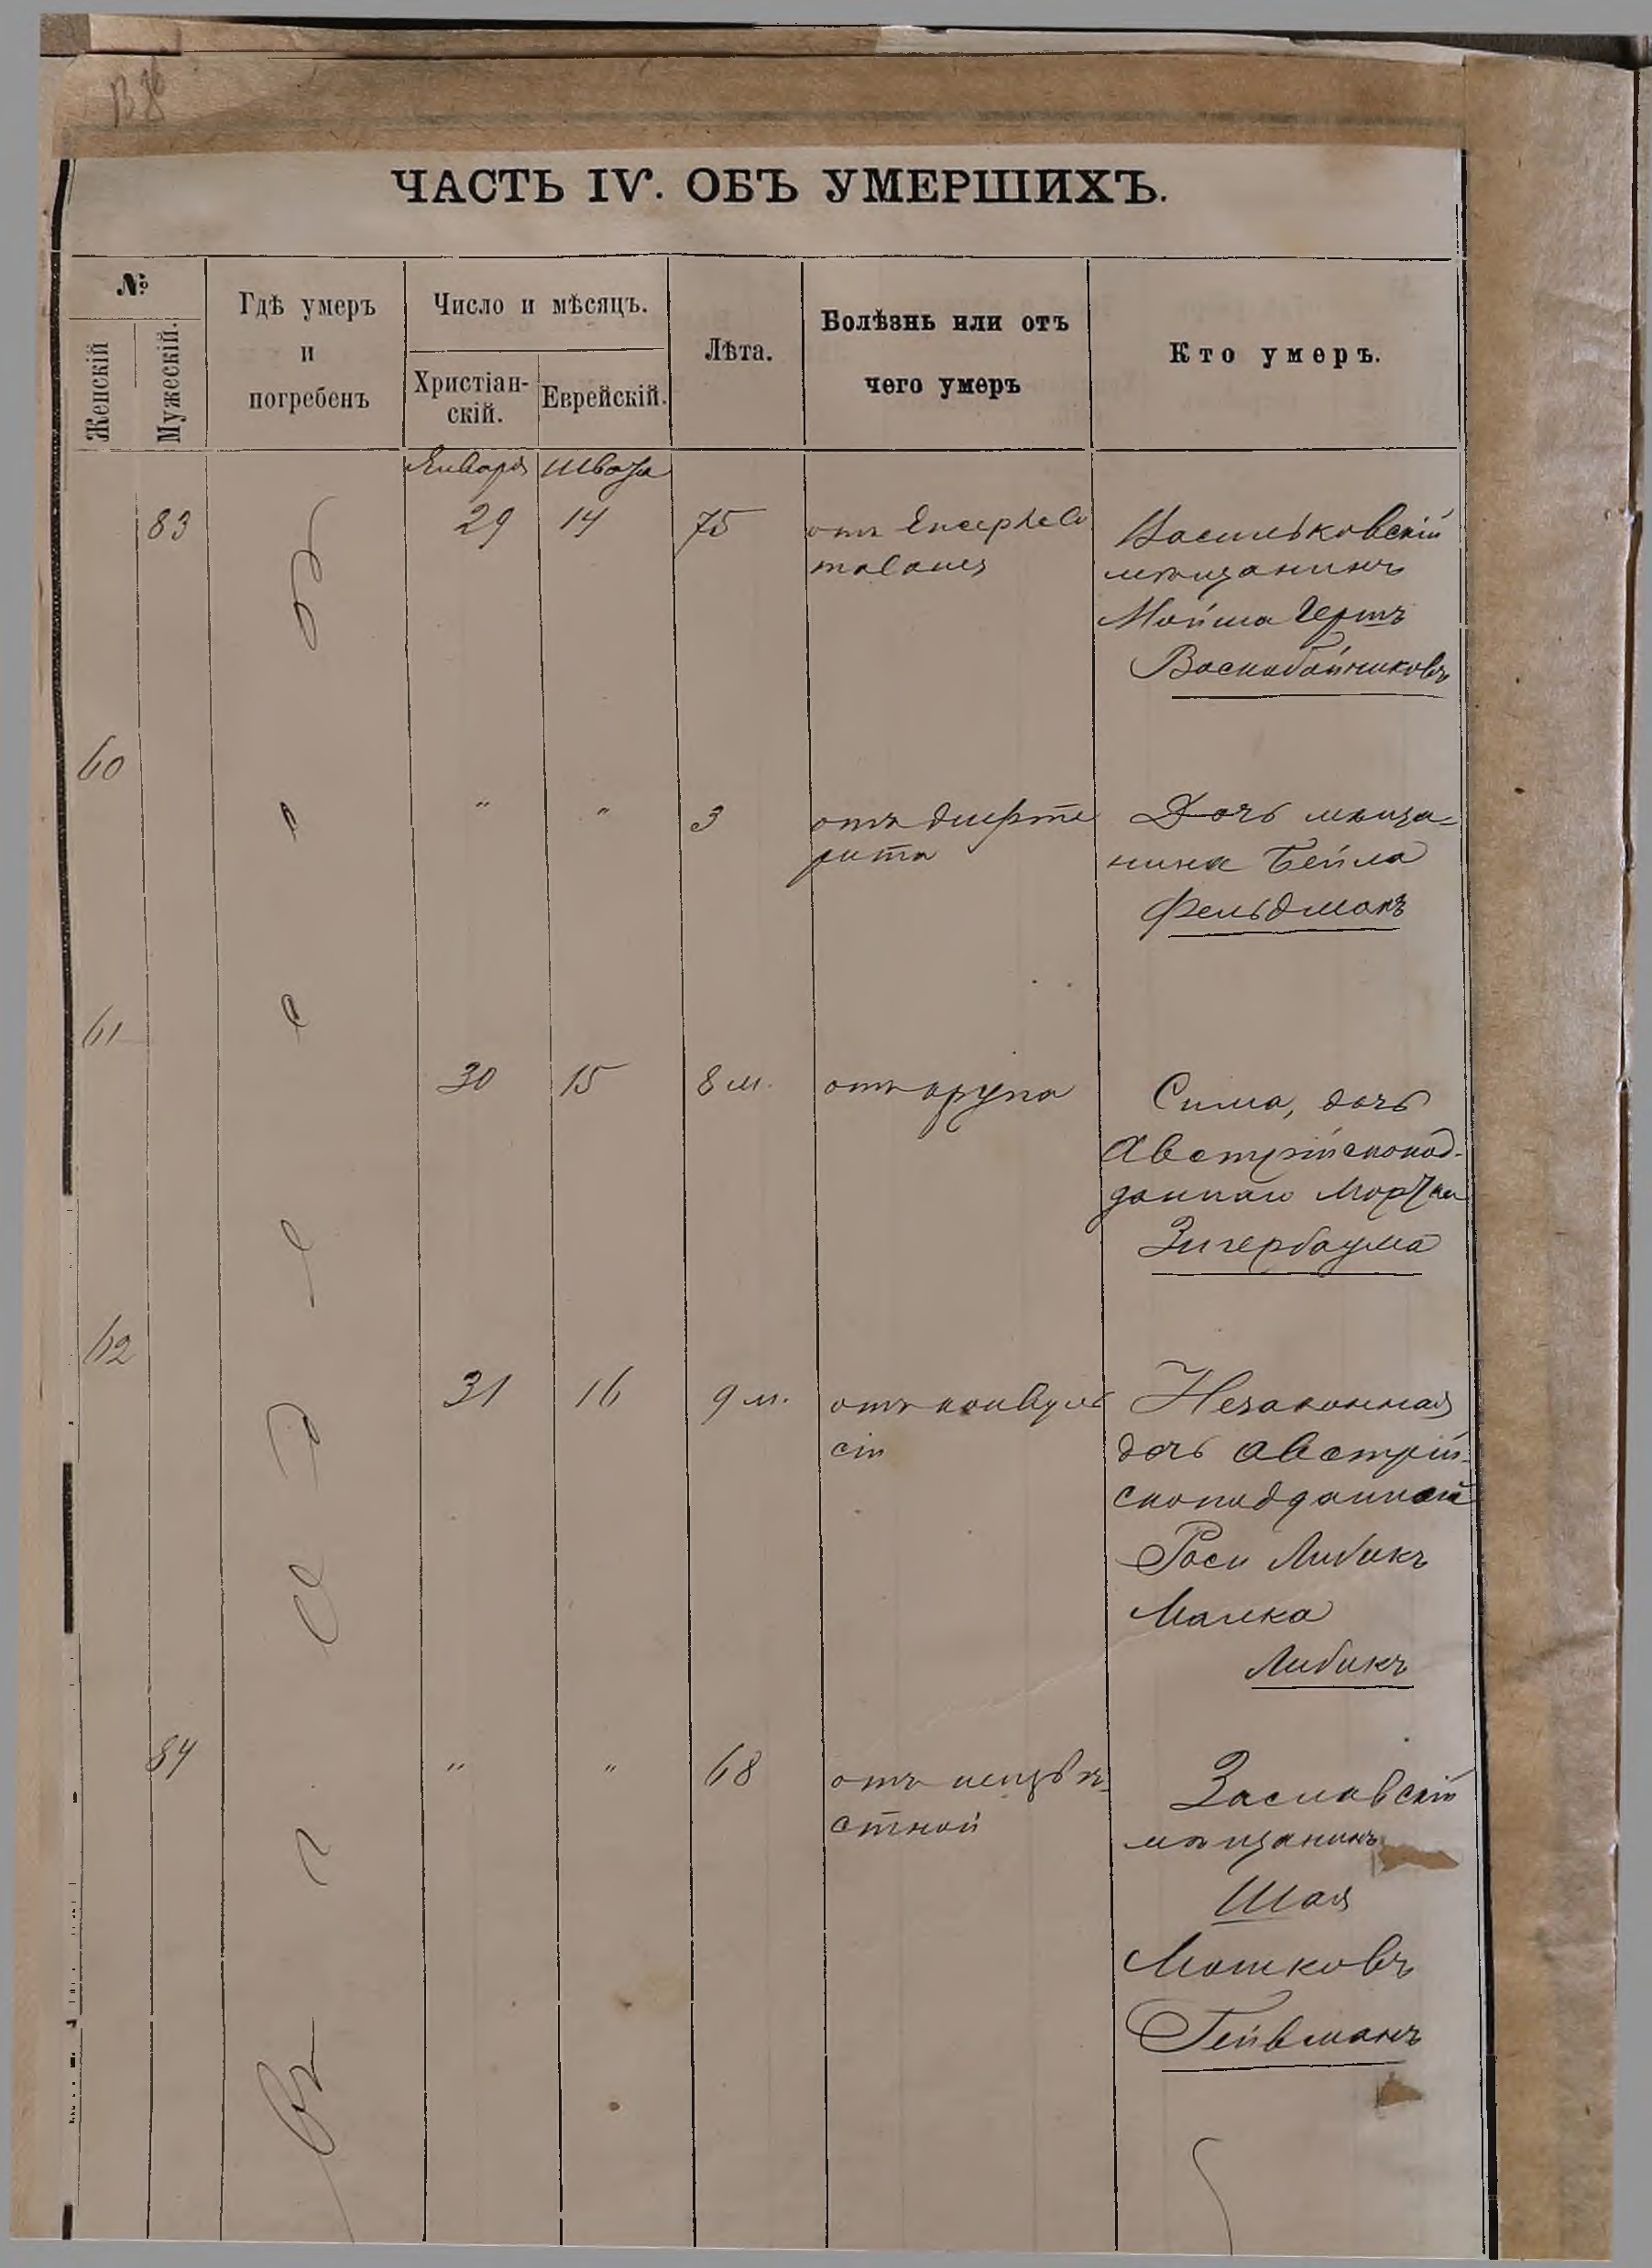 ЧАСТЬ IV. ОБЪ УМЕРШИХЪ.
№
Женскій
Мужескій.
Гдѣ умеръ
и
погребенъ
Число и мѣсяцъ.
Христіан-
скій.
Еврейскій.
Лѣта.
Болѣзнь или отъ
чего умеръ
Кто умеръ.
Января Швата
83 29 14 75 отъ Encephalo
malacies
Васильковскій
мѣщанинъ
Мойша Герть
Воскобойниковъ
60 " " 3 отъ дифте
рита
Дочь мѣща-
нина Бейла
Фельдманъ
61 30 15 8 м. отъ крупа
Сима, дочь
Австрійскопод-
даннаго
Зигербаума
62 31 16 9 м. отъ конвуль
сіи
Незаконная
дочь австрій-
скоподданной
Роси Либикъ
Малка
Либикъ
84 " " 68 отъ неизвѣ-
стной
Заславскій
мѣщанинъ
Шая
Мошковъ
Гейвманъ